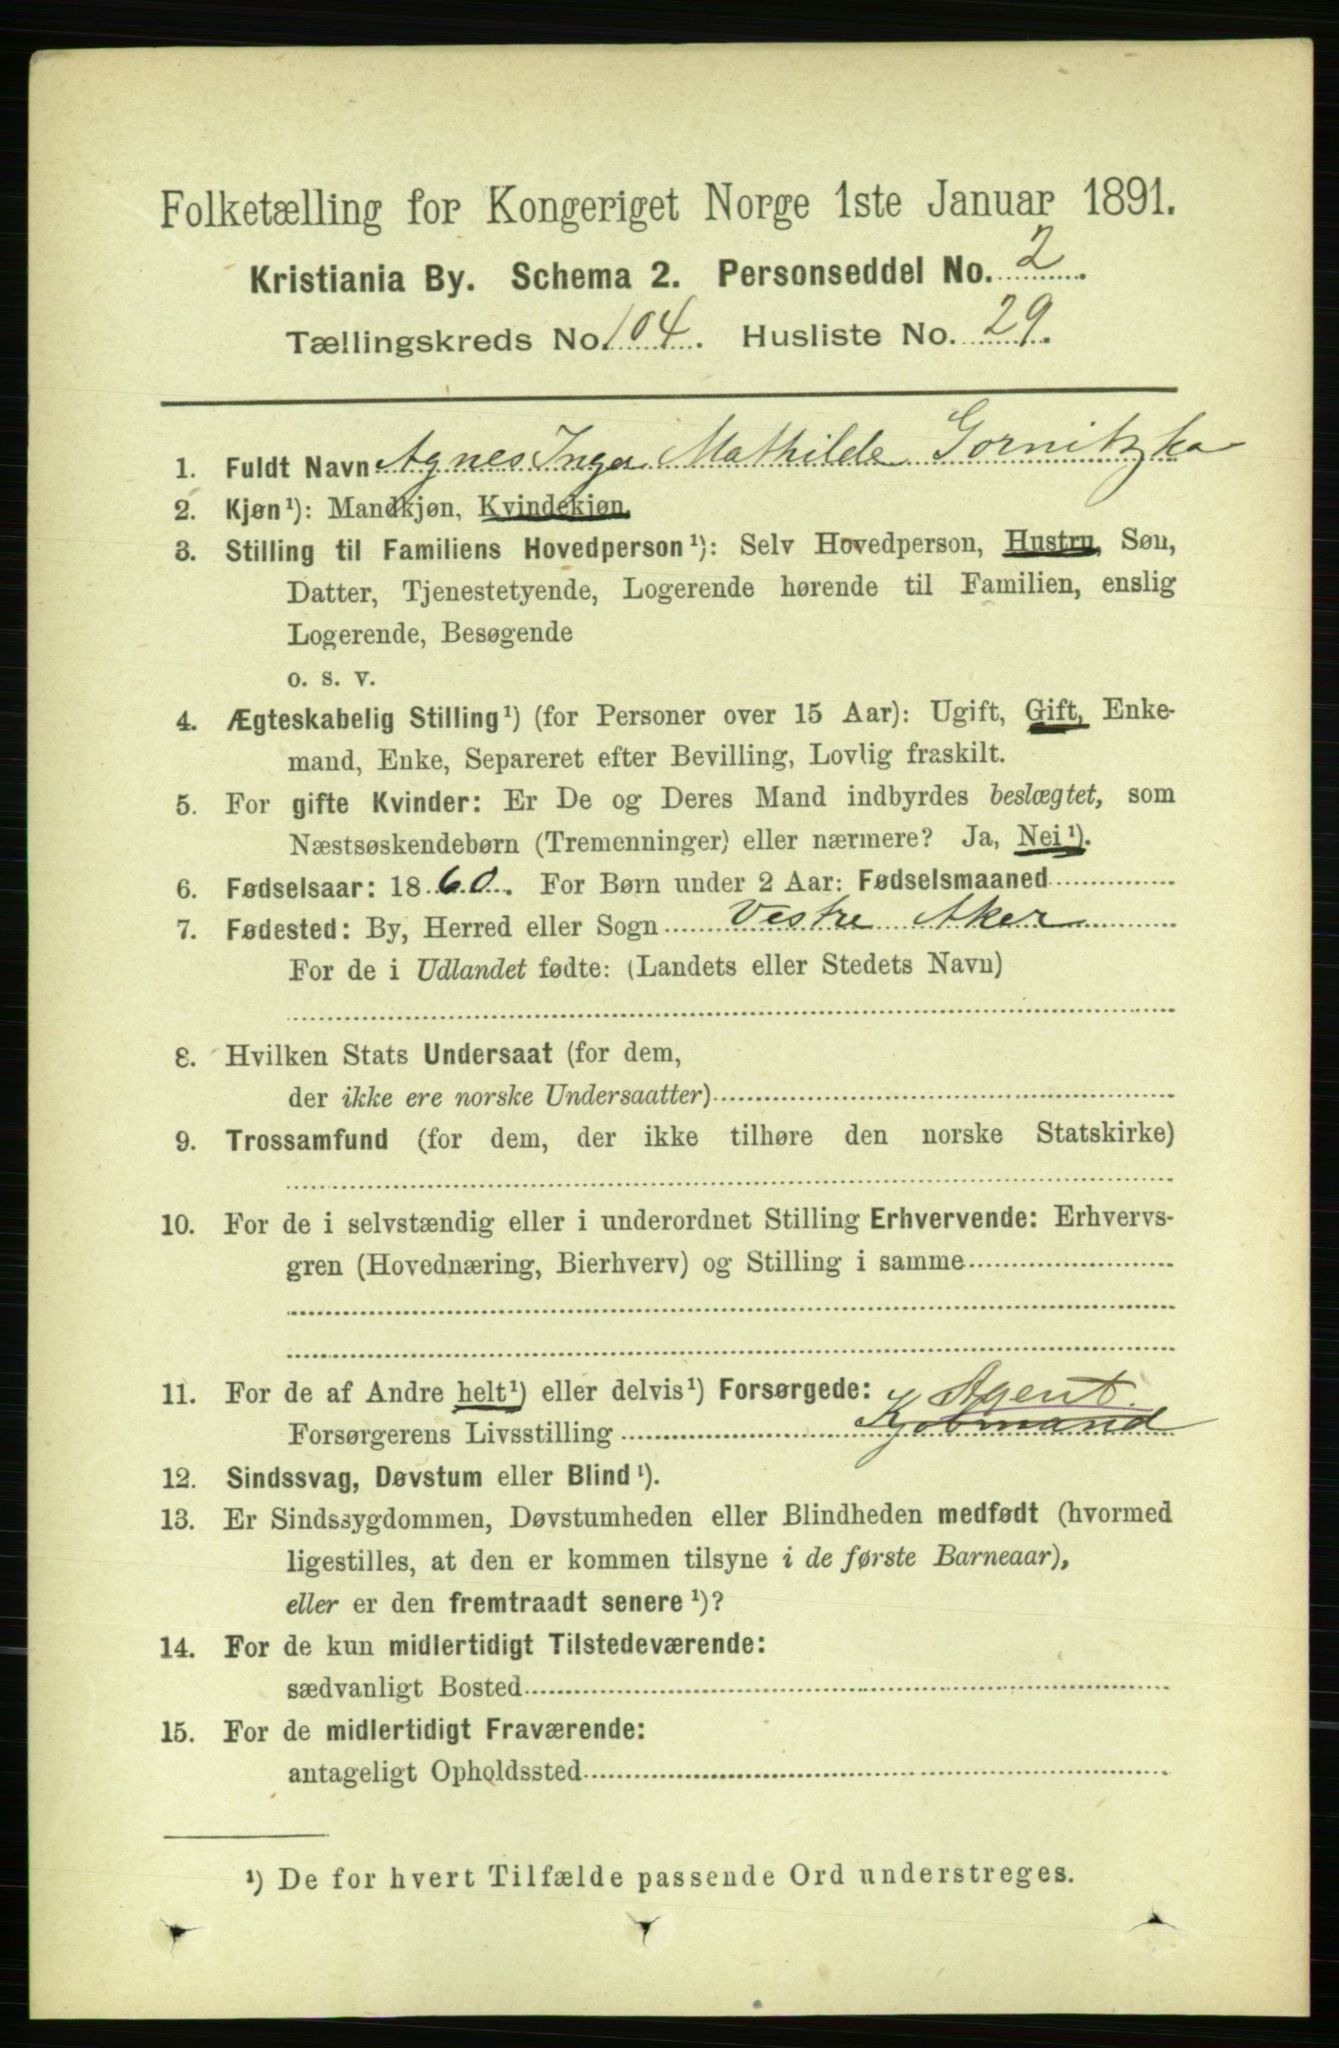 Folketælling for Kongeriget Norge 1ste Januar 1891.
Kristiania By. Schema 2. Personseddel No. 2
Tællingskreds No. 104. Husliste No. 29.
1. Fuldt Navn Agnes Inga Mathilde Gornitzka
2. Kjøn¹): Mandkjøn, Kvindekjøn.
3. Stilling til Familiens Hovedperson¹): Selv Hovedperson, Hustru, Søn,
Datter, Tjenestetyende, Logerende hørende til Familien, enslig
Logerende, Besøgende
o. s. v.
4. Ægteskabelig Stilling¹) (for Personer over 15 Aar): Ugift, Gift, Enke-
mand, Enke, Separeret efter Bevilling, Lovlig fraskilt.
5. For gifte Kvinder: Er De og Deres Mand indbyrdes beslægtet, som
Næstsøskendebørn (Tremenninger) eller nærmere? Ja, Nei¹).
6. Fødselsaar: 1860. For Børn under 2 Aar: Fødselsmaaned
7. Fødested: By, Herred eller Sogn Vestre Aker
For de i Udlandet fødte: (Landets eller Stedets Navn)
8. Hvilken Stats Undersaat (for dem,
der ikke ere norske Undersaatter)
9. Trossamfund (for dem, der ikke tilhøre den norske Statskirke)
10. For de i selvstændig eller i underordnet Stilling Erhvervende: Erhvervs-
gren (Hovednæring, Bierhverv) og Stilling i samme
11. For de af Andre helt¹) eller delvis¹) Forsørgede: Agent.
Forsørgerens Livsstilling Kjøbmand
12. Sindssvag, Døvstum eller Blind¹).
13. Er Sindssygdommen, Døvstumheden eller Blindheden medfødt (hvormed
ligestilles, at den er kommen tilsyne i de første Barneaar),
eller er den fremtraadt senere¹)?
14. For de kun midlertidigt Tilstedeværende:
sædvanligt Bosted
15. For de midlertidigt Fraværende:
antageligt Opholdssted
¹) De for hvert Tilfælde passende Ord understreges.